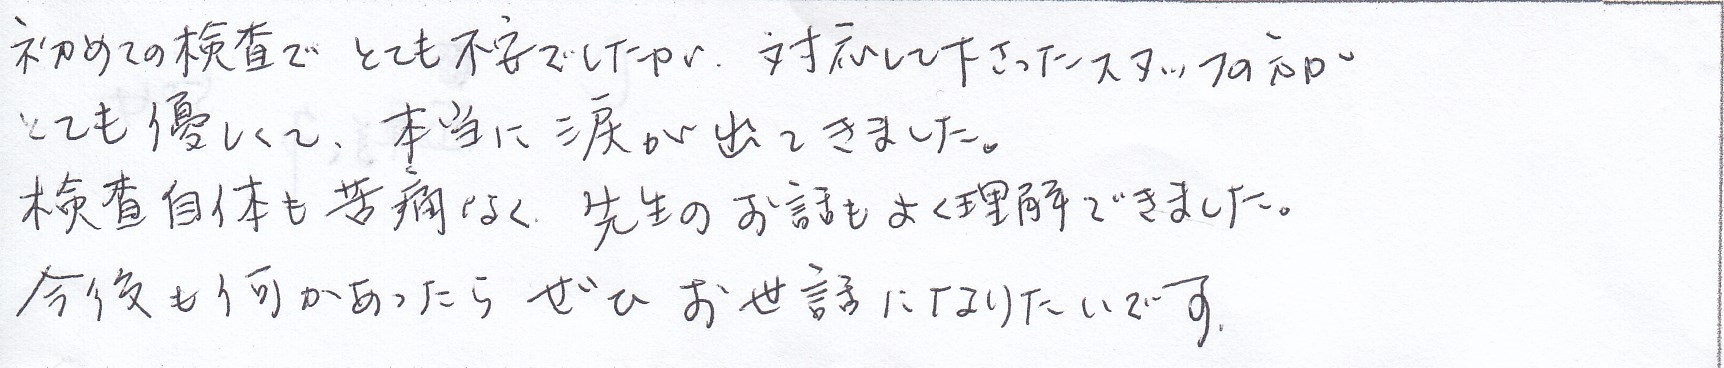 初めての検査でとても不安でしたが、対応して下さったスタッフの方が
とても優しくて、本当に涙が出てきました。
検査自体も苦痛なく、先生のお話もよく理解できました。
今後も何かあったらぜひお世話になりたいです。